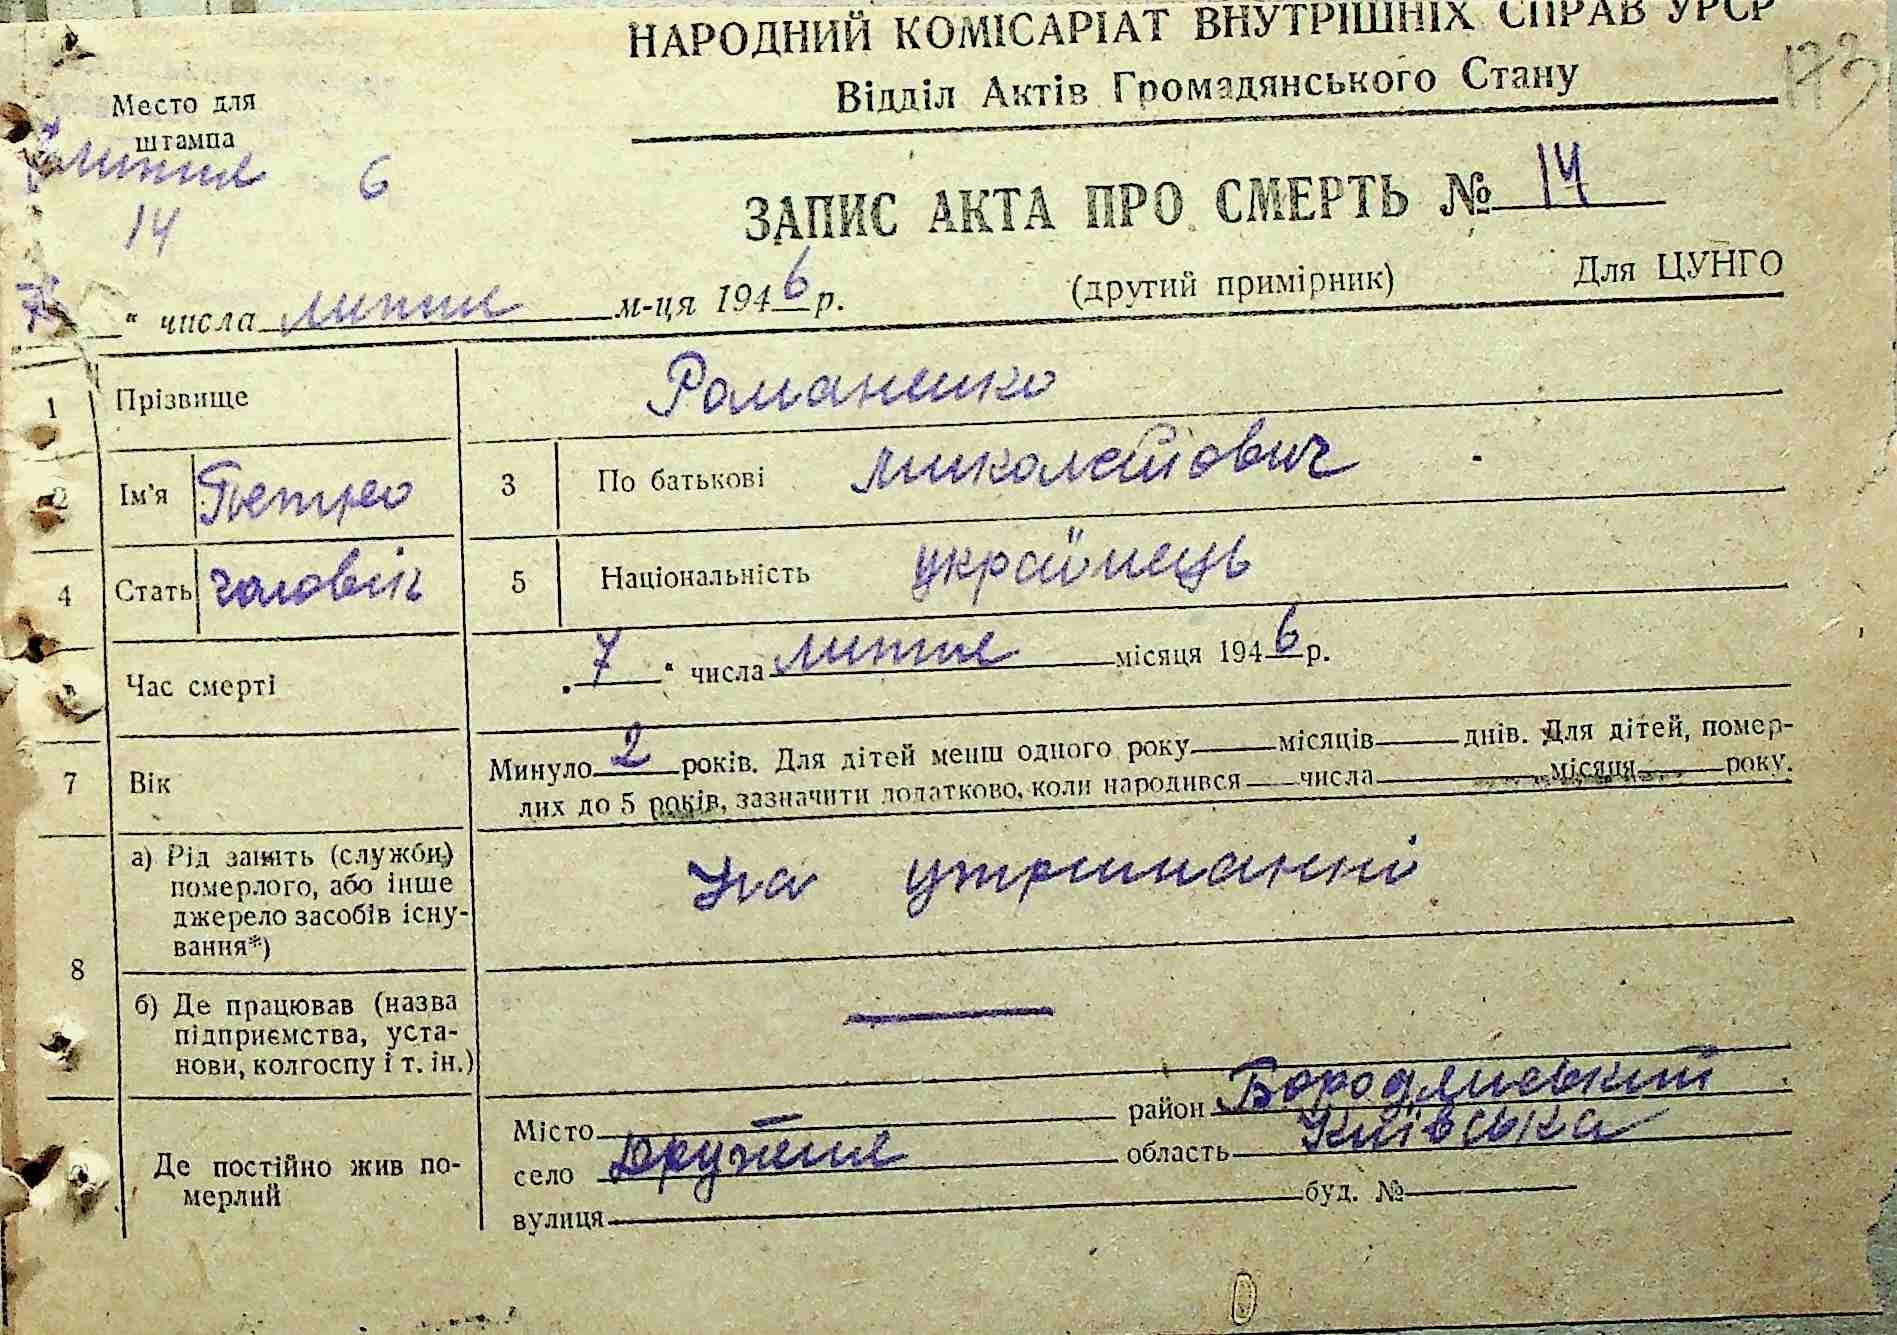 НАРОДНИЙ КОМІСАРІАТ ВНУТРІШНІХ СПРАВ УРСР
173
Відділ Актів Громадянського Стану
Место для
штампа
липня 6
14
ЗАПИС АКТА ПРО СМЕРТЬ № 14
" числа липня м-ця 1946 р. (другий примірник) Для ЦУНГО
1 Прізвище Романенко
2 Ім'я Петро 3 По батькові Миколайович
4 Стать чоловік 5 Національність українець
Час смерті „7" числа липня місяця 1946 р.
7 Вік Минуло 2 років. Для дітей менш одного року місяців днів. Для дітей, помер-
лих до 5 років, зазначити додатково, коли народився числа місяця року.
8 а) Рід занять (служби) померлого, або інше джерело засобів існу-вання*) на утриманні
б) Де працював (назва підприємства, уста-нови, колгоспу і т. ін.) —
Де постійно жив по-мерлий
Місто — район Бородянський
село Дружня область Київська
вулиця буд. №